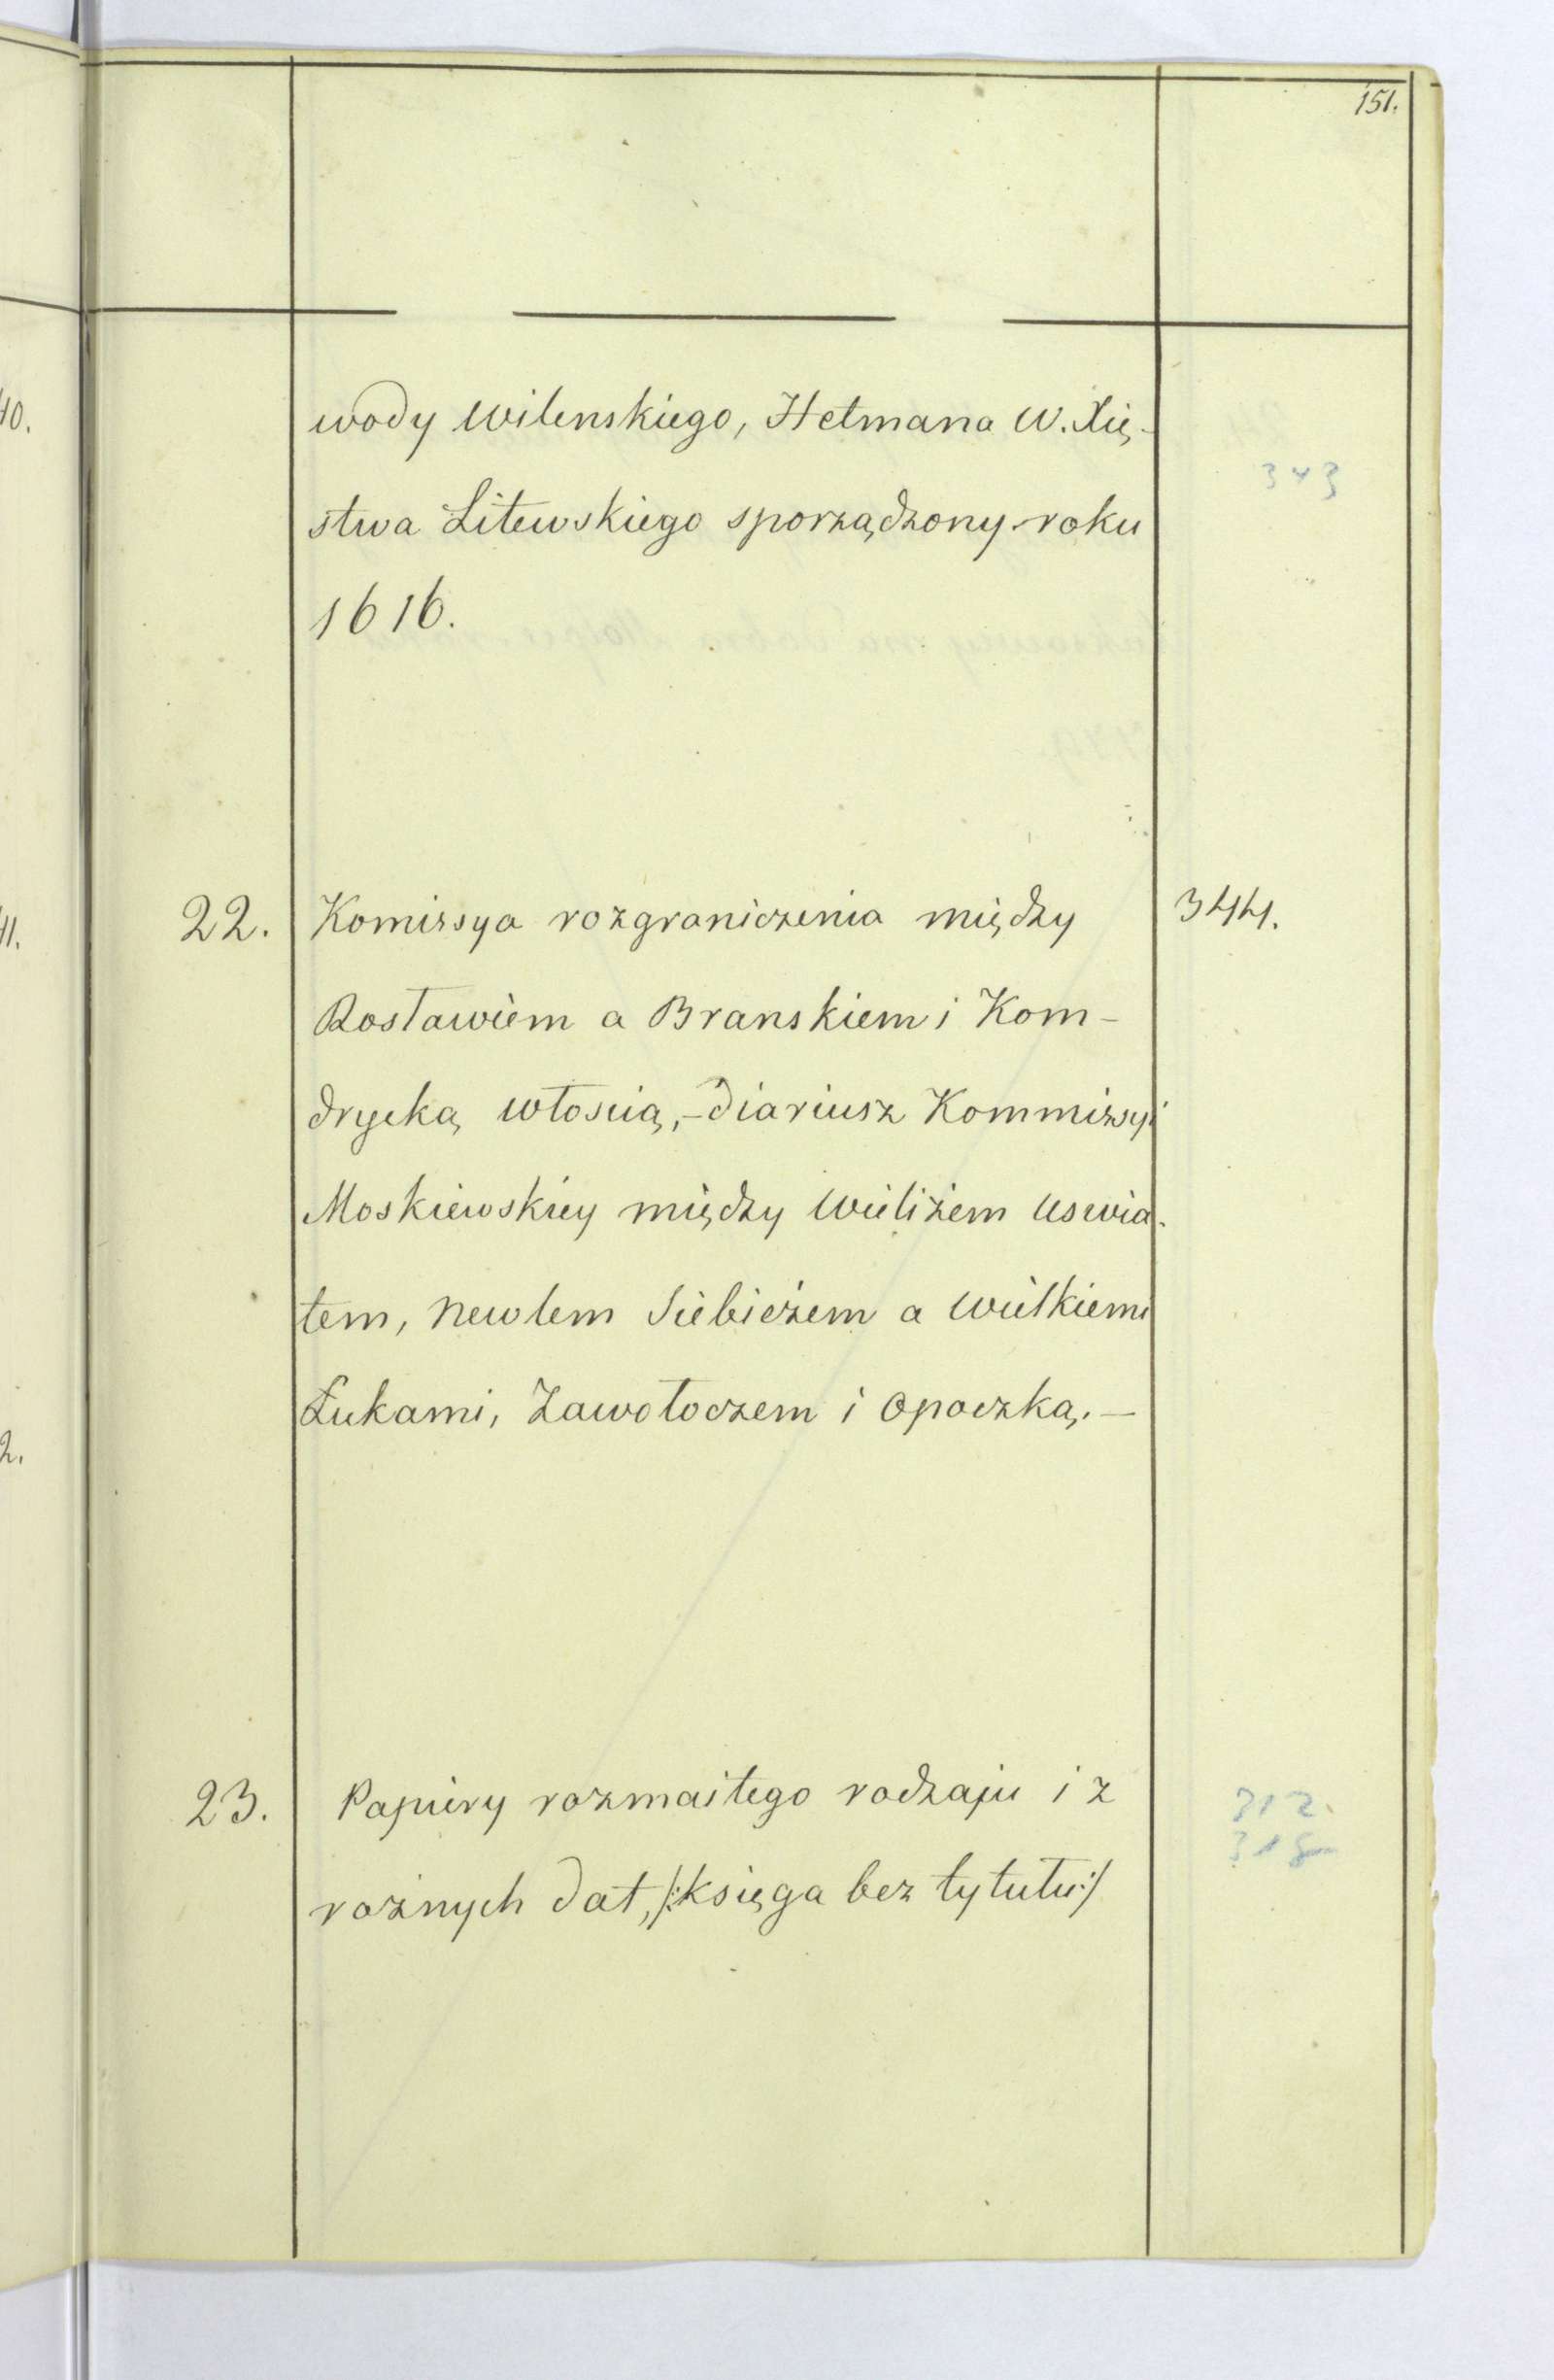 151.
wody Wilenskiego, Hetmana W. Xię-
stwa Litewskiego sporządzony roku
343
1616.
22. Komissya rozgraniczenia między 344.
Rosławiem a Branskiem i Kom-
drycką włoscią, – diariusz Kommissyi
Moskiewskiey między Wieliżem Uswia-
tem, Newlem Siebieżem a Wielkiemi
Łukami, Zawołoczem i Opoczką. —
23. Papiery rozmaitego rodzaju i z 312.
rożnych dat, /:księga bez tytułu:/
40.
41.
2.